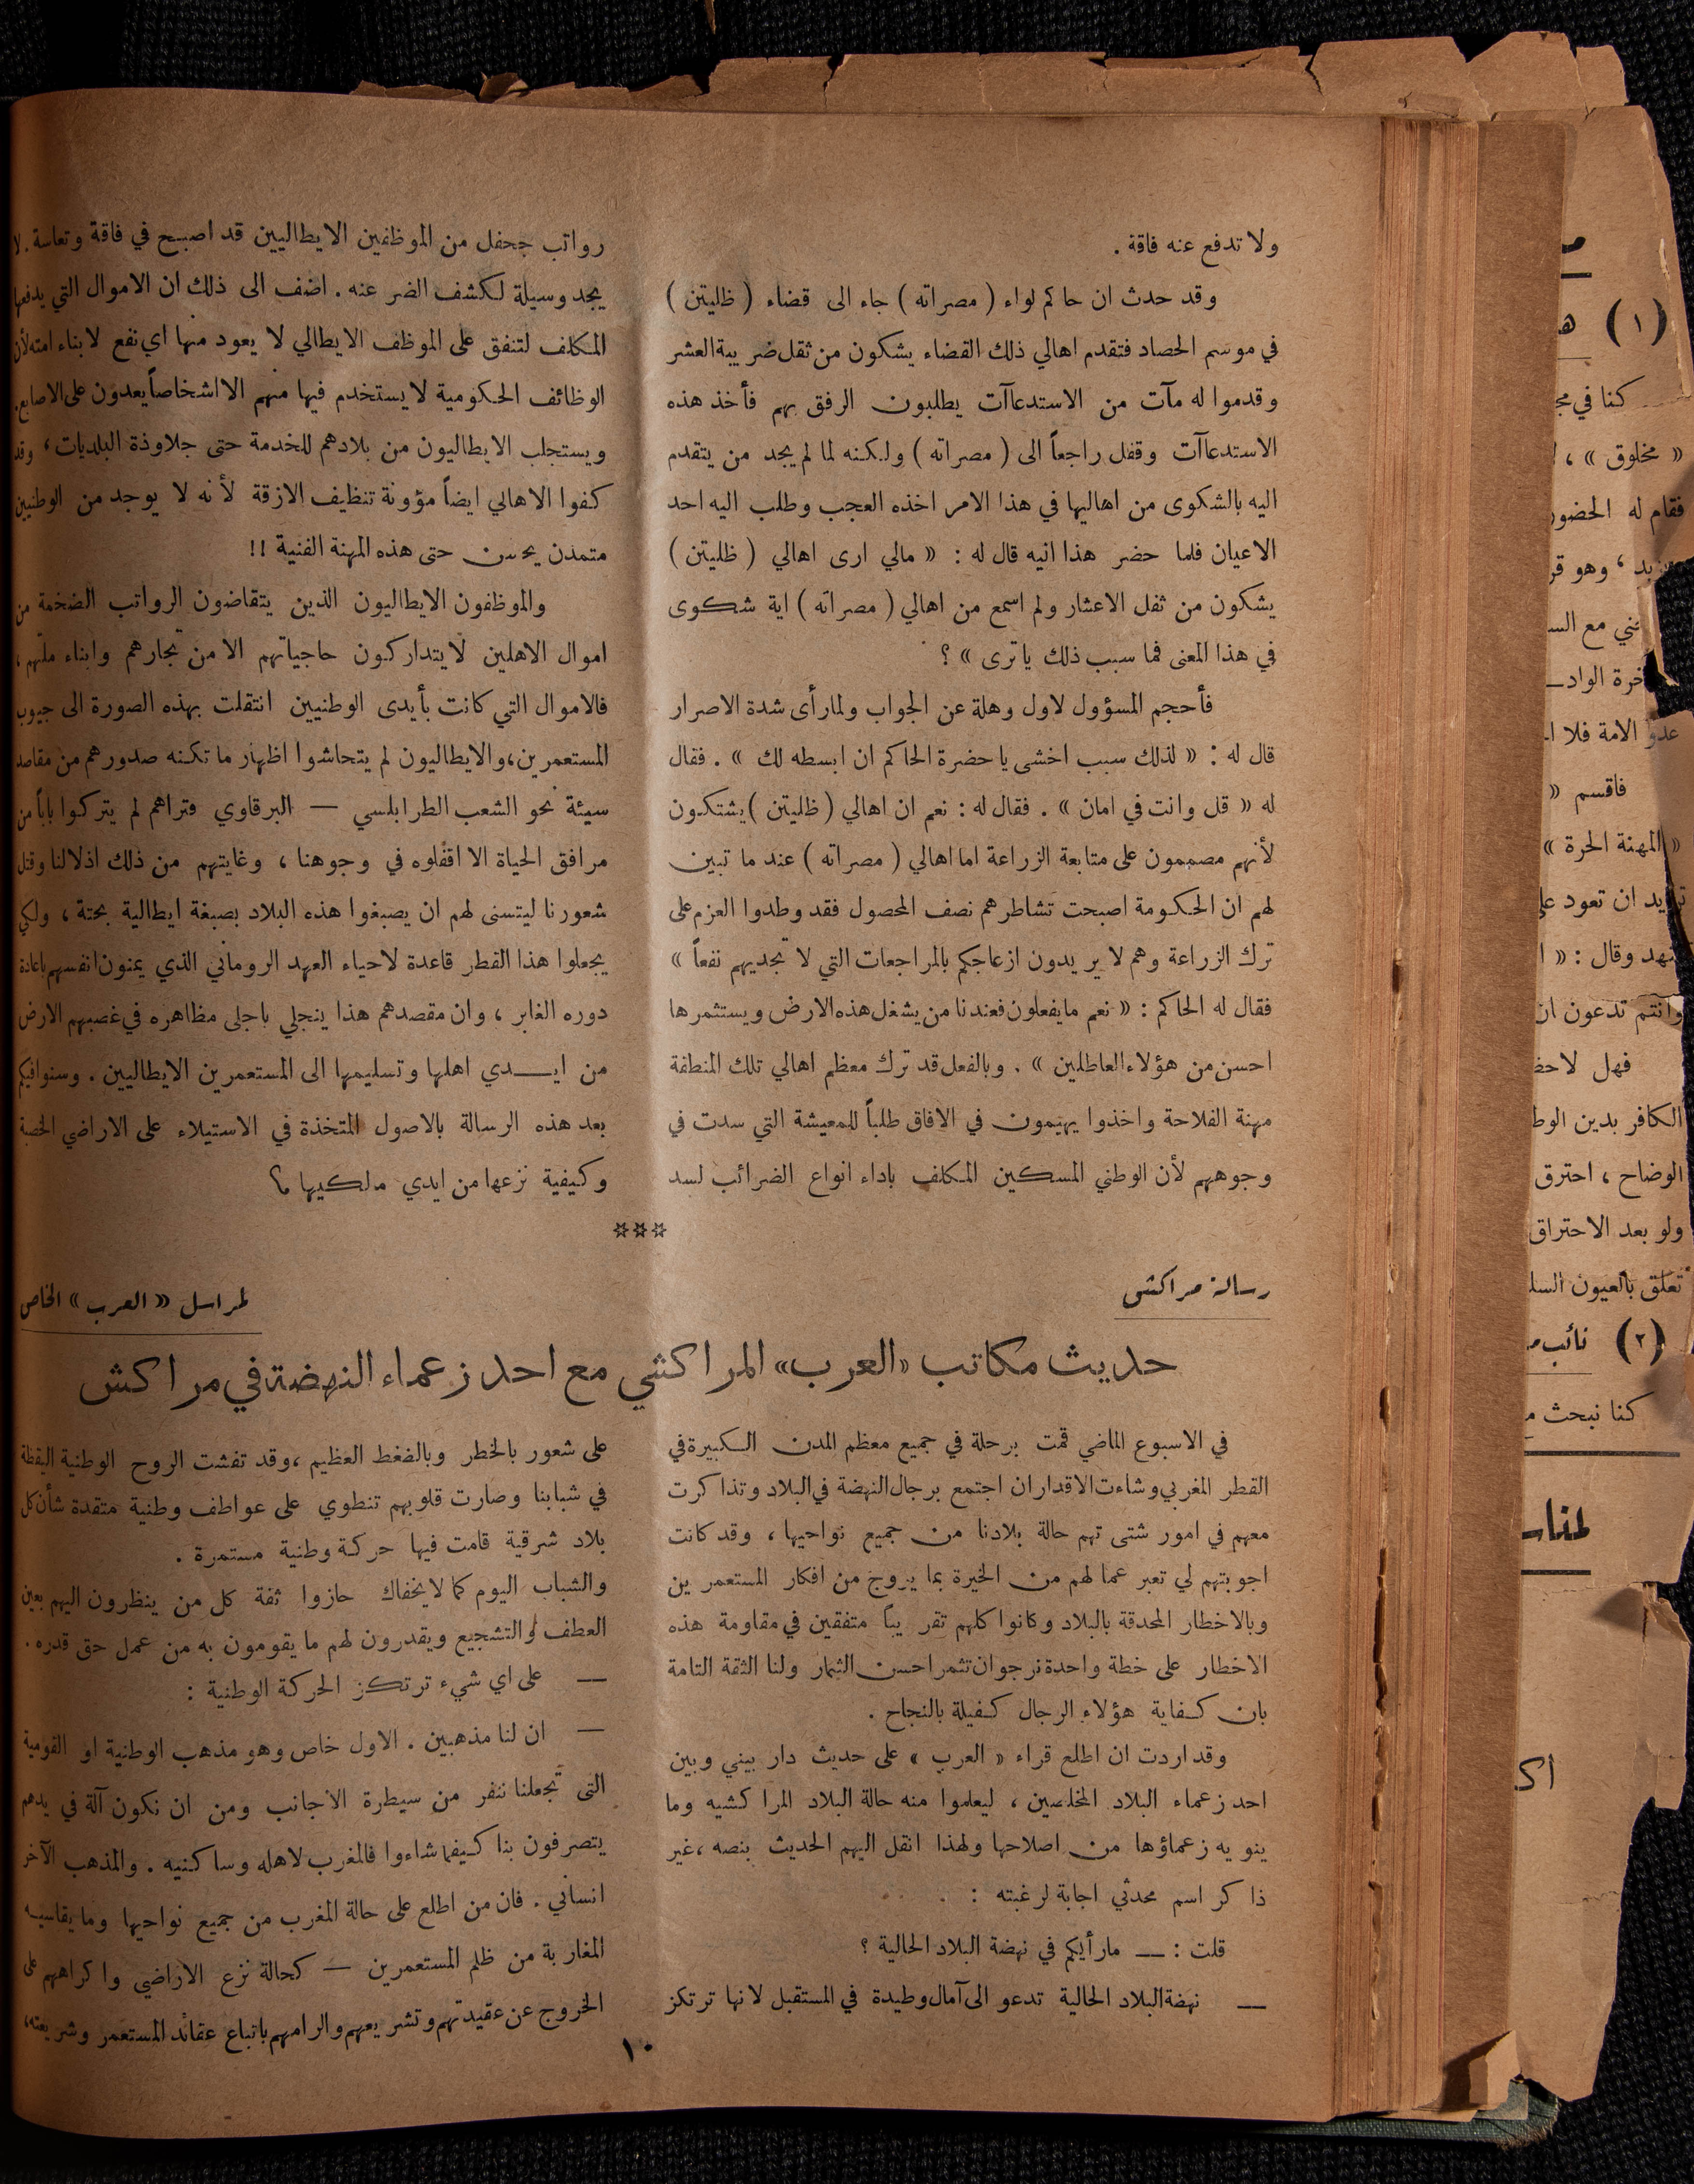 ولا تدفع عنه فاقة .
وقد حدث ان حاكم لواء ( مصراته ) جاء الى قضاء ( ظليتن )
في موسم الحصاد فتقدم اهالي ذلك القضاء يشكون من ثقل ضريبة العشر
وقدموا له مآت من الاستدعاآت يطلبون الرفق بهم فأخذ هذه
الاستدعاآت وقفل راجعاً الى ( مصراته ) ولكنه لما لم يجد من يتقدم
اليه بالشكوى من اهاليها في هذا الامر اخذه العجب وطلب اليه احد
الاعيان فلما حضر هذا انيه قال له : « مالي ارى اهالي ( ظليتن )
يشكون من ثفل الاعشار ولم اسمع من اهالي ( مصراته ) اية شكوى
في هذا المعنى فما سبب ذلك ياترى » ؟
فأحجم المسؤول لاول وهلة عن الجواب ولمارأى شدة الاصرار
قال له : « لذلك سبب اخشى يا حضرة الحاكم ان ابسطه لك » . فقال
له « قل وانت في امان » . فقال له : نعم ان اهالي ( ظليتن ) يشتكون
لأنهم مصممون على متابعة الزراعة اما اهالي ( مصراته ) عند ما تبين
لهم ان الحكومة اصبحت تشاطرهم نصف المحصول فقد وطدوا العزم على
ترك الزراعة وهم لا يريدون ازعاجكم بالمراجعات التي لا تجديهم نفعاً »
فقال له الحاكم : « نعم مايفعلون فعندنا من يشغل هذه الارض ويستثمرها
احسن من هؤلاء العاطلين » . وبالفعل قد ترك معظم اهالي تلك المنطقة
مهنة الفلاحة واخذوا يهيمون في الافاق طلباً للمعيشة التي سدت في
وجوههم لأن الوطني المسكين المكلف باداء انواع الضرائب لسد
رواتب جحفل من الموظفين الايطاليين قد اصبح في فاقة وتعاسة . لا
يجد وسيلة لكشف الضر عنه . اضف الى ذلك ان الاموال التي يدفعها
المكلف لتنفق على الموظف الايطالي لا يعود منها اي نفع لابناء امته لأن
الوظائف الحكومية لا يستخدم فيها منهم الا اشخاصاً يعدون على الاصابع.
ويستجلب الايطاليون من بلادهم للخدمة حتى جلاوذة البلديات ، وقد
كفوا الاهالي ايضاً مؤونة تنظيف الازقة لأنه لا يوجد من الوطنيين
متمدن يحسن حتى هذه المهنة الفنية !!
والموظفون الايطاليون الذين يتقاضون الرواتب الضخمة من
اموال الاهلين لايتداركون حاجياتهم الا من تجارهم وابناء ملتهم ،
فالاموال التي كانت بأيدى الوطنيين انتقلت بهذه الصورة الى جيوب
المستعمرين، والايطاليون لم يتحاشوا اظهار ما تكنه صدورهم من مقاصد
سيئة نحو الشعب الطرابلسي — البرقاوي فتراهم لم يتركوا باباً من
مرافق الحياة الا اقفلوه في وجوهنا ، وغايتهم من ذلك اذلالنا وقتل
شعورنا ليتسنى لهم ان يصبغوا هذه البلاد بصبغة ايطالية بحتة ، ولكي
يجعلوا هذا القطر قاعدة لاحياء العهد الروماني الذي يمنون انفسهم باعادة
دوره الغابر ، وان مقصدهم هذا ينجلي باجلى مظاهره في غصبهم الارض
من ايـدي اهلها وتسليمها الى المستعمرين الايطاليين . وسنوافيكم
بعد هذه الرسالة بالاصول المتخذة في الاستيلاء على الاراضي الخصبة
وكيفية نزعها من ايدي مالكيها
***
رسالة مراكش
لمراسل « العرب » الخاص
حديث مكاتب «العرب» المراكشي مع احد زعماء النهضة في مراكش
في الاسبوع الماضي قمت برحلة في جميع معظم المدن الكبيرة في
القطر المغربي وشاءت الاقدار ان اجتمع برجال النهضة في البلاد وتذاكرت
معهم في امور شتى تهم حالة بلادنا من جميع نواحيها ، وقد كانت
اجوبتهم لي تعبر عما لهم من الخيرة بما يروج من افكار المستعمرين
وبالاخطار المحدقة بالبلاد وكانوا كلهم تقريباً متفقين في مقاومة هذه
الاخطار على خطة واحدة نرجوان تثمر احسن الثمار ولنا الثقة التامة
بان كفاية هؤلاء الرجال كفيلة بالنجاح .
وقد اردت ان اطلع قراء « العرب » على حديث دار بيني وبين
احد زعماء البلاد المخلصين ، ليعلموا منه حالة البلاد المراكشيه وما
ينويه زعماؤها من اصلاحها ولهذا انقل اليهم الحديث بنصه ، غير
ذاكر اسم محدثي اجابة لرغبته :
قلت : — مارأيكم في نهضة البلاد الحالية ؟
— نهضة البلاد الحالية تدعو الى آمال وطيدة في المستقبل لانها ترتكز
على شعور بالخطر وبالضغط العظيم ، وقد تفشت الروح الوطنية اليقظة
في شبابنا وصارت قلوبهم تنطوي على عواطف وطنية متقدة شأن كل
بلاد شرقية قامت فيها حركة وطنية مستمرة .
والشباب اليوم كما لايخفاك حازوا ثقة كل من ينظرون اليهم بعين
العطف والتشجيع ويقدرون لهم ما يقومون به من عمل حق قدره .
— على اي شيء ترتكز الحركة الوطنية :
— ان لنا مذهبين . الاول خاص وهو مذهب الوطنية او القومية
التى تجعلنا ننفر من سيطرة الاجانب ومن ان نكون آلة في يدهم
يتصرفون بنا كيفما شاءوا فالمغرب لاهله وساكنيه . والمذهب الآخر
انساني . فان من اطلع على حالة المغرب من جميع نواحيها وما يقاسيه
المغاربة من ظلم المستعمرين — كحالة نزع الاراضي واكراههم على
الخروج عن عقيدتهم وتشريعهم والزامهم باتباع عقائد المستعمر وشريعته،
١٠
(١)
كنا في
« مخلوق » ،
فقام له الحضور
، وهو
مع
عدو الامة فلا
فاقسم «
« المهنة الحرة »
ان تعود
وقال : «
وانتم تدعون ان
فهل
الكافر بدين
الوضاح ، احترق
ولو بعد الاحتراق
تعلق بالعيون
(٢) نائب
كنا نبحث